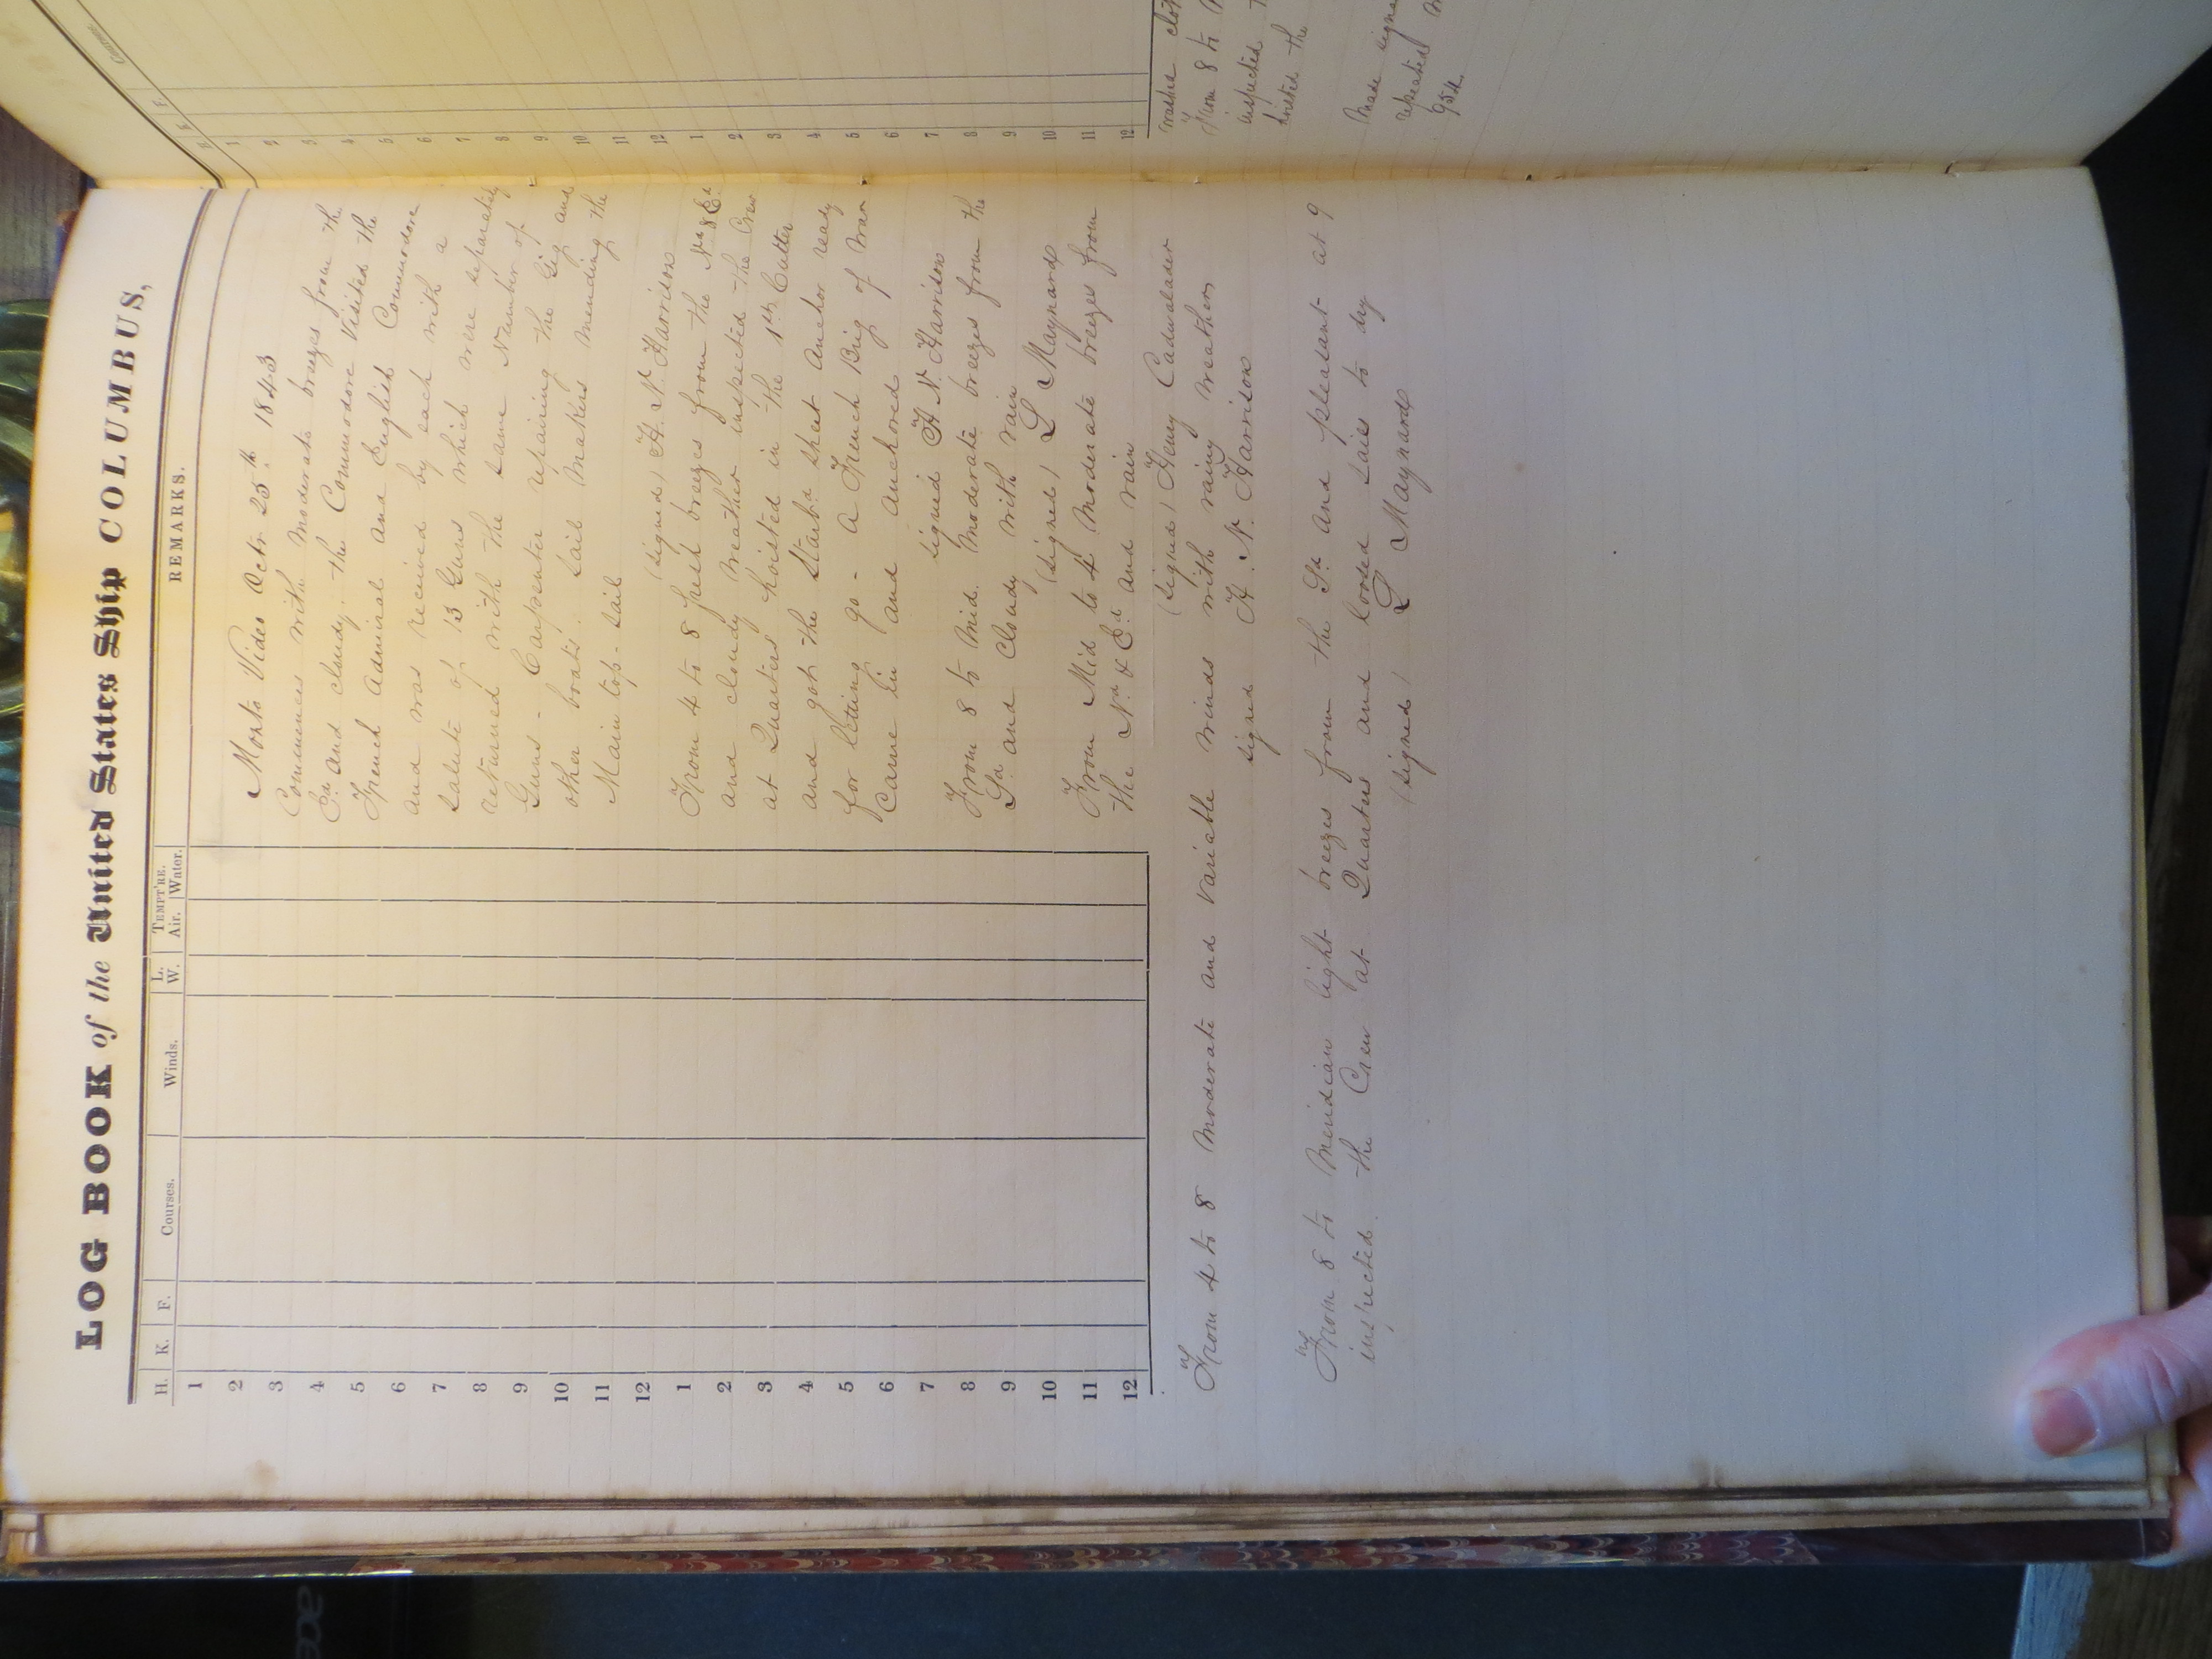 LOG BOOK of the United States Ship COLUMBUS,
H. K. F. Courses. Winds. L. W. TEMPT'RE. Air. Water. REMARKS.
1
2
3
4
5
6
7
8
9
10
11
12
1
2
3
4
5
6
7
8
9
10
11
12
Monto Video Octr. 25th 1843
Commences with moderate breezes from the
Ed. and cloudy; the Commodore Visited the
French Admiral and English Commodore
and was received by each with a
salute of 13 Guns which were separately
returned with the same Number of
Guns - Carpenter repairing the Gig and
other boats. Sail Makers mending the
Main top-sail
(signed) H. N. Harrison
From 4 to 8 fresh breezes from the Nd & Ed
and cloudy weather inspected the Crew
at Quarters hoisted in the 1st Cutter
and got the Starbd sheet Anchor ready
for letting go - A French Brig of War
came in and anchored
signed H N Harrison
From 8 to Mid. Moderate breezes from the
Sd and Cloudy with rain
(signed) L Maynard
From Mid to 4 Moderate breezes from
the Nd & Ed and rain
(signed) Henry Cadwalader
From 4 to 8 Moderate and Variable winds with rainy weather
signed H. N. Harrison
From 8 to Meridian light breezes from the Sd and pleasant at 9
inspected the Crew at Quarters and loosed sails to dry
(signed) L Maynard
H. K. F. Courses
1
2
3
4
5
6
7
8
9
10
11
12
1
2
3
4
5
6
7
8
9
10
11
12
washed
From 8 to
inspected
hoisted the
Made
repeated
954